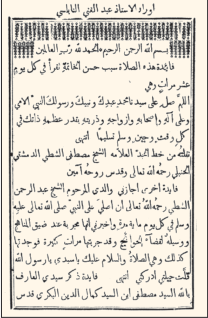 اوراد الاستاذ عبد الغني النابلسي
بسم الله الرحمن الرحيم الحمد لله رب العالمين
فائدة هذه الصلاة سبب حسن الخاتمة تقرأ في كل يوم
عشر مرات وهي
اللهم صل على سيدنا محمد عبدك ونبيك ورسولك النبي الامي
وعلى آله واصحابه وازواجه وذريته بقدر عظمة ذاتك في
كل وقت وحين وسلم تسليما انتهى
نقلته من خط العلامة الشيخ مصطفى الشطي الدمشقي
الحنبلي رحمه الله تعالى وقدس روحه آمين
فائدة اخرى اجازني والدي المرحوم الشيخ عبد الرحمن
الشطي رحمه الله تعالى ان اصلي على النبي صلى الله تعالى عليه
وسلم في كل يوم مائة مرة واخبرني انها مجربة عند ضيق المناهج
ووسيلة لقضاء الحوائج وقد جربتها مرات كثيرة فوجدتها
كذلك وهي الصلاة والسلام عليك يا سيدي يا رسول الله
قلت حيلتي ادركني انتهى فائدة ذكر سيدي العارف
بالله السيد مصطفى ابن السيد كمال الدين البكري قدس